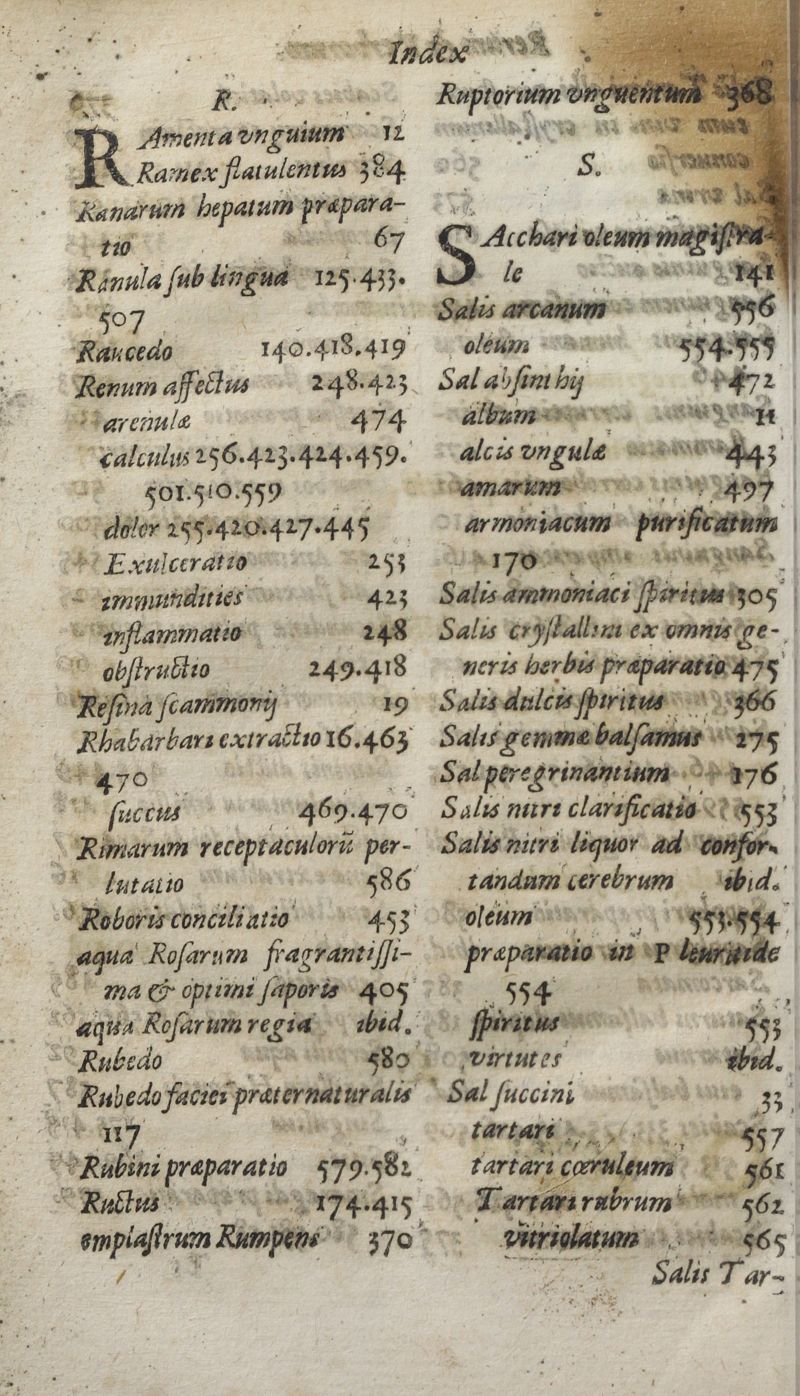 Index
R.
RAmenta vnguium 12
Ramex flatulentus 384
Ranarum hepatum præpara-
tio 67
Ranula ſub lingua 125.433.
507
Raucedo 140.418.419
Renum affectus 248.423
arenulæ 474
calculus 256.423.424.459.
501.510.559
dolor 255.420.427.445
Exulceratio 253
immundities 423
inflammatio 248
obſtructio 249.418
Reſina ſcammonij 19
Rhabarbari extractio 16.463
470
ſuccus 469.470
Rimarum receptaculorũ per-
lutatio 586
Roboris conciliatio 453
aqua Roſarum fragrantiſſi-
ma & optimi ſaporis 405
aqua Roſarum regia ibid.
Rubedo 580
Rubedo faciei præternaturalis
117
Rubini præparatio 579.582
Ructus 174.415
emplaſtrum Rumpens 370
Ruptorium vnguentum 368
S.
SAcchari oleum magiſtra-
le 141
Salis arcanum 556
oleum 554.555
Sal abſinthij 472
album 11
alcis vngulæ 443
amarum 497
armoniacum purificatum
170
Salis ammoniaci ſpiritus 305
Salis cryſtallini ex omnis ge-
neris herbis præparatio 475
Salis dulcis ſpiritus 366
Salis gemmæ balſamus 275
Sal peregrinantium 176
Salis nitri clarificatio 553
Salis nitri liquor ad confor-
tandum cerebrum ibid.
oleum 553.554
præparatio in Pleuritide
554
ſpiritus 553
virtutes ibid.
Sal ſuccini 33
tartari 557
tartari cœruleum 561
Tartari rubrum 562
vitriolatum 565
Salis Tar-